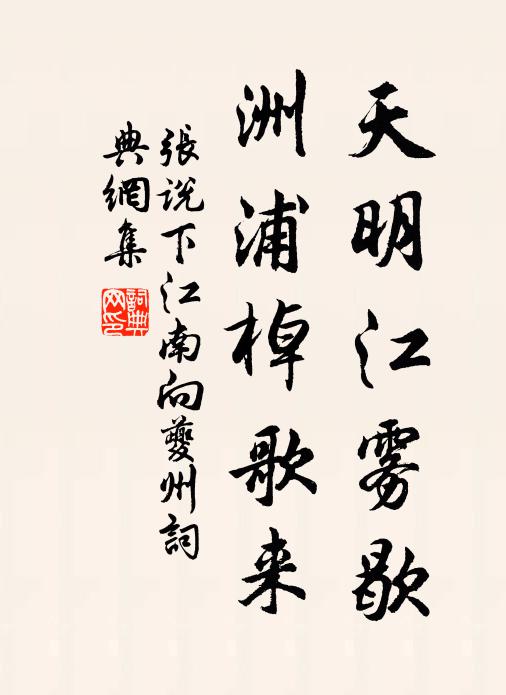 天明江雾歇
洲浦棹歌来
張説下江南向夔州詞
典網集
詞典
网印